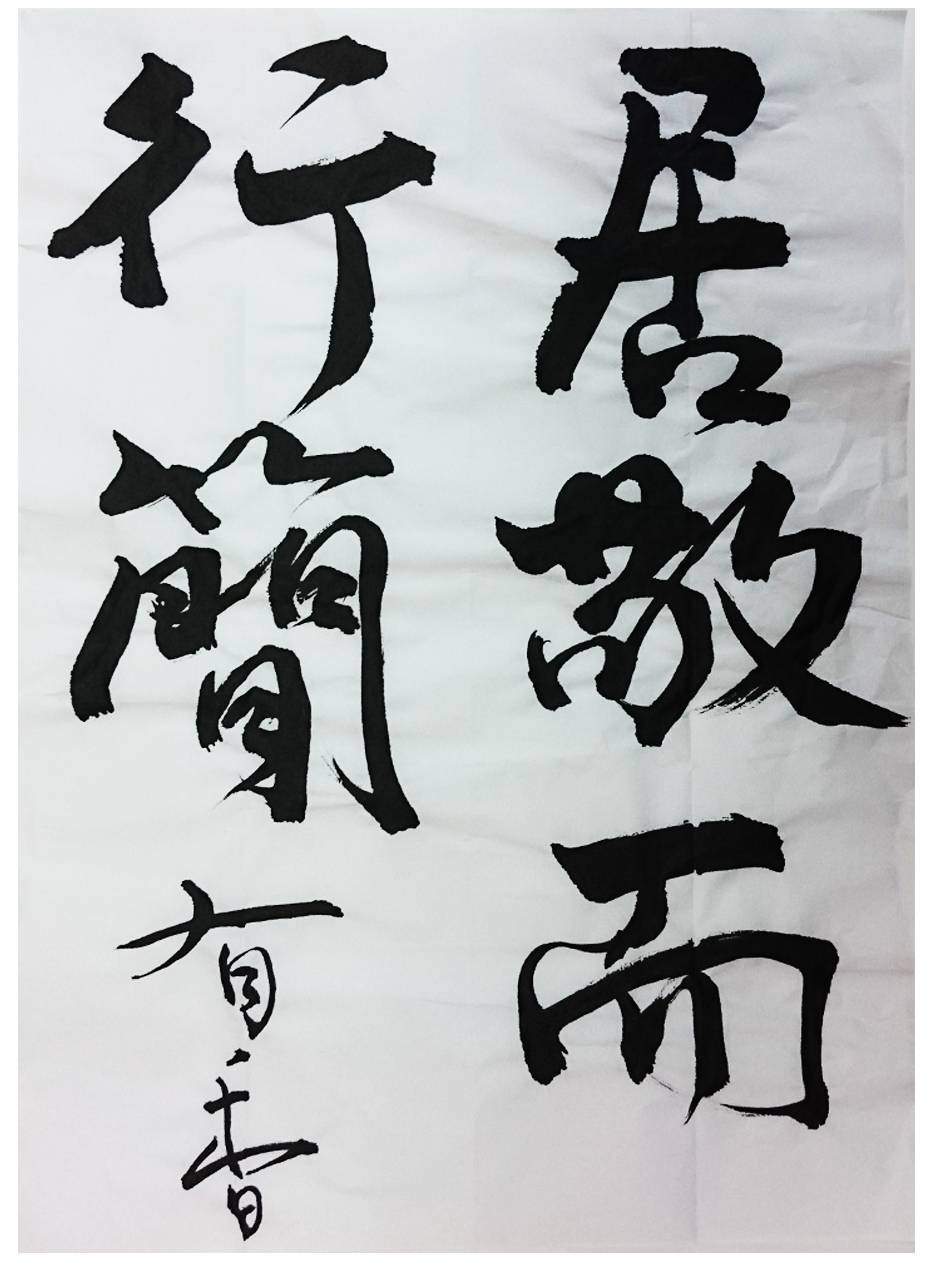 居敬而
行簡 有香